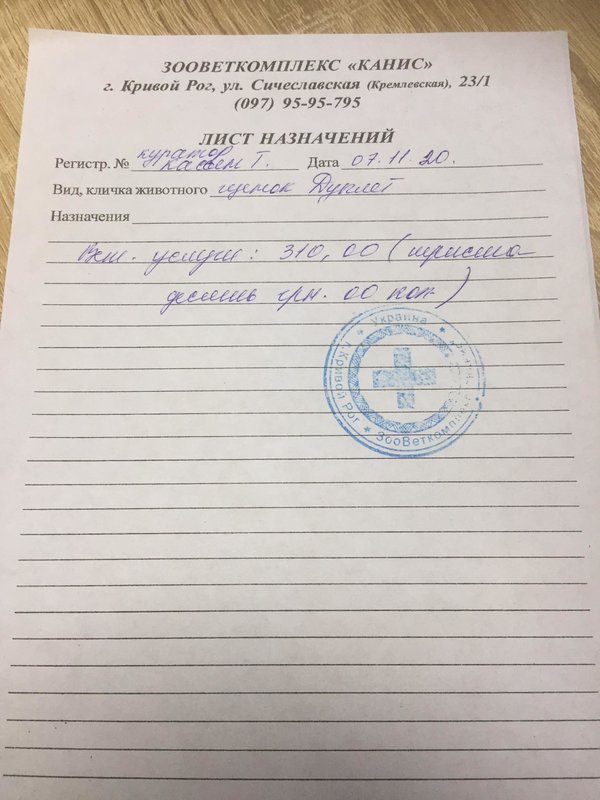 ЗООВЕТКОМПЛЕКС «КАНИС»
г. Кривой Рог, ул. Сичеславская (Кремлевская), 23/1
(097) 95-95-795
ЛИСТ НАЗНАЧЕНИЙ
куратор
Регистр. № Т. Дата 07.11.20.
Вид, кличка животного щенок
Назначения
Вет. услуги: 310,00 (триста
десять грн. 00 коп.)
Украина
г. Кривой Рог
ЗооВеткомплекс